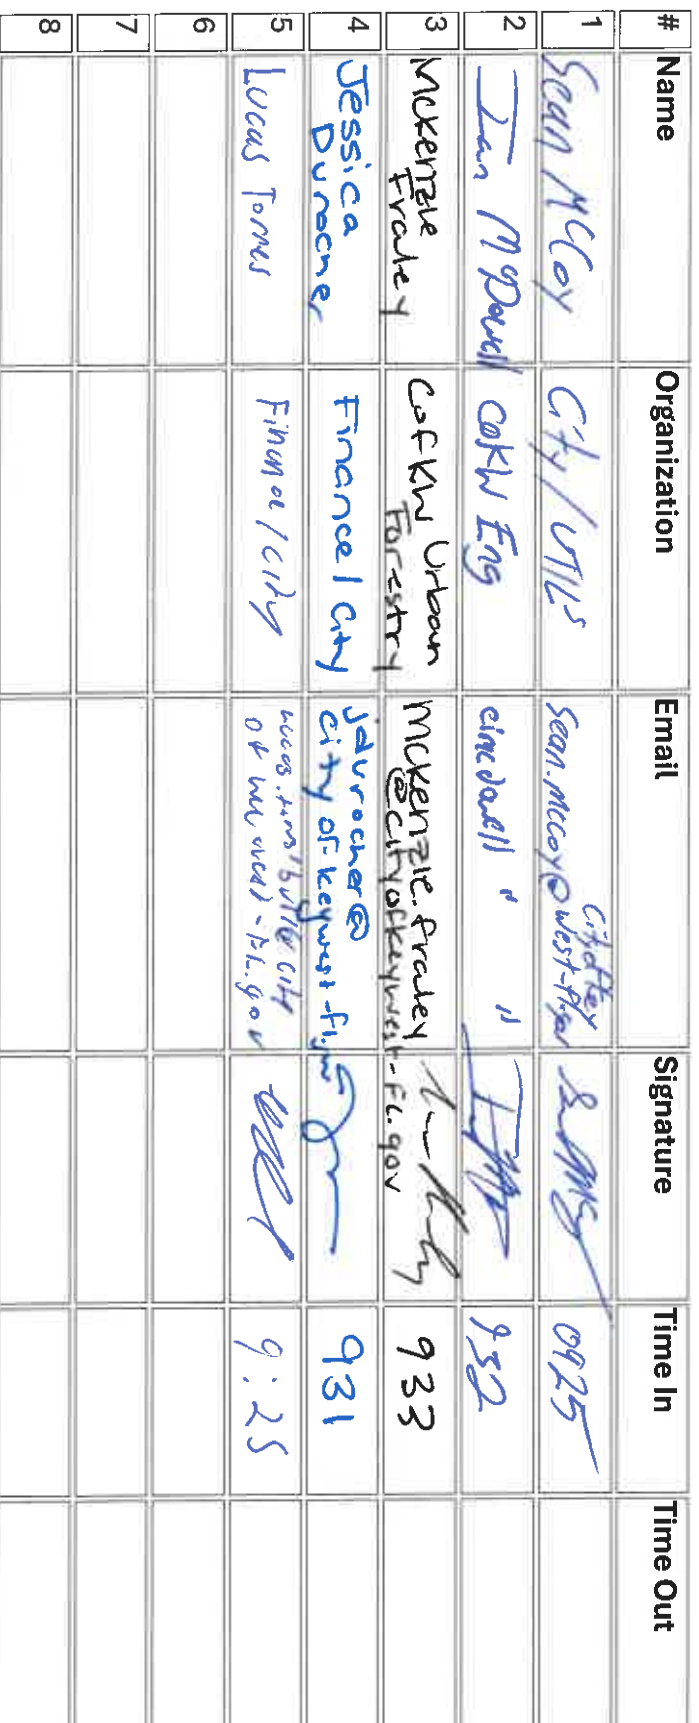 # Name Organization Email Signature Time In Time Out
1 Sean McCoy City/UTILS Sean.mccoy@cityofkeywest-fl.gov 0925
2 Ian McDowell CoKW Eng " " 932
3 Mckenzie Fraley CofKW Urban Forestry mckenzie.fraley@cityofkeywest-FL.gov 933
4 Jessica Durocher Finance/City jdurocher@cityofkeywest-fl.gov 931
5 Lucas Torres Finance/City 9:25
6
7
8